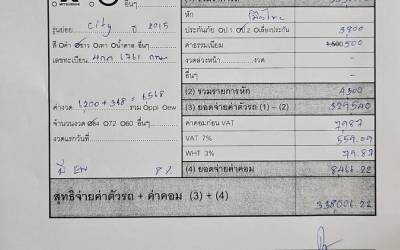 หัก มีค่าโอน
รุ่นย่อย city ปี 2015
ประกันภัย ป.1 ป.2 เลือกประกัน 3,800
สี ดำ ขาว เทา น้ำตาล อื่นๆ
ค่าธรรมเนียม 1,500 500
เลขทะเบียน กทม
งวดล่วงหน้า งวด
อื่นๆ
(2) รวมรายการหัก 4300
ค่างวด 1,200 + 368 = 1,568 รวม ppi ew
(3) ยอดจ่ายค่าตัวรถ (1) - (2) 329540
จำนวนงวด 84 72 60 อื่นๆ
ค่าคอมก่อน VAT 7987
งวดแรกวันที่
VAT 7% 559.09
WHT 3% 79.87
มี EW 8%
(4) ยอดจ่ายค่าคอม 8466.22
สุทธิจ่ายค่าตัวรถ + ค่าคอม (3) + (4) 338006.22